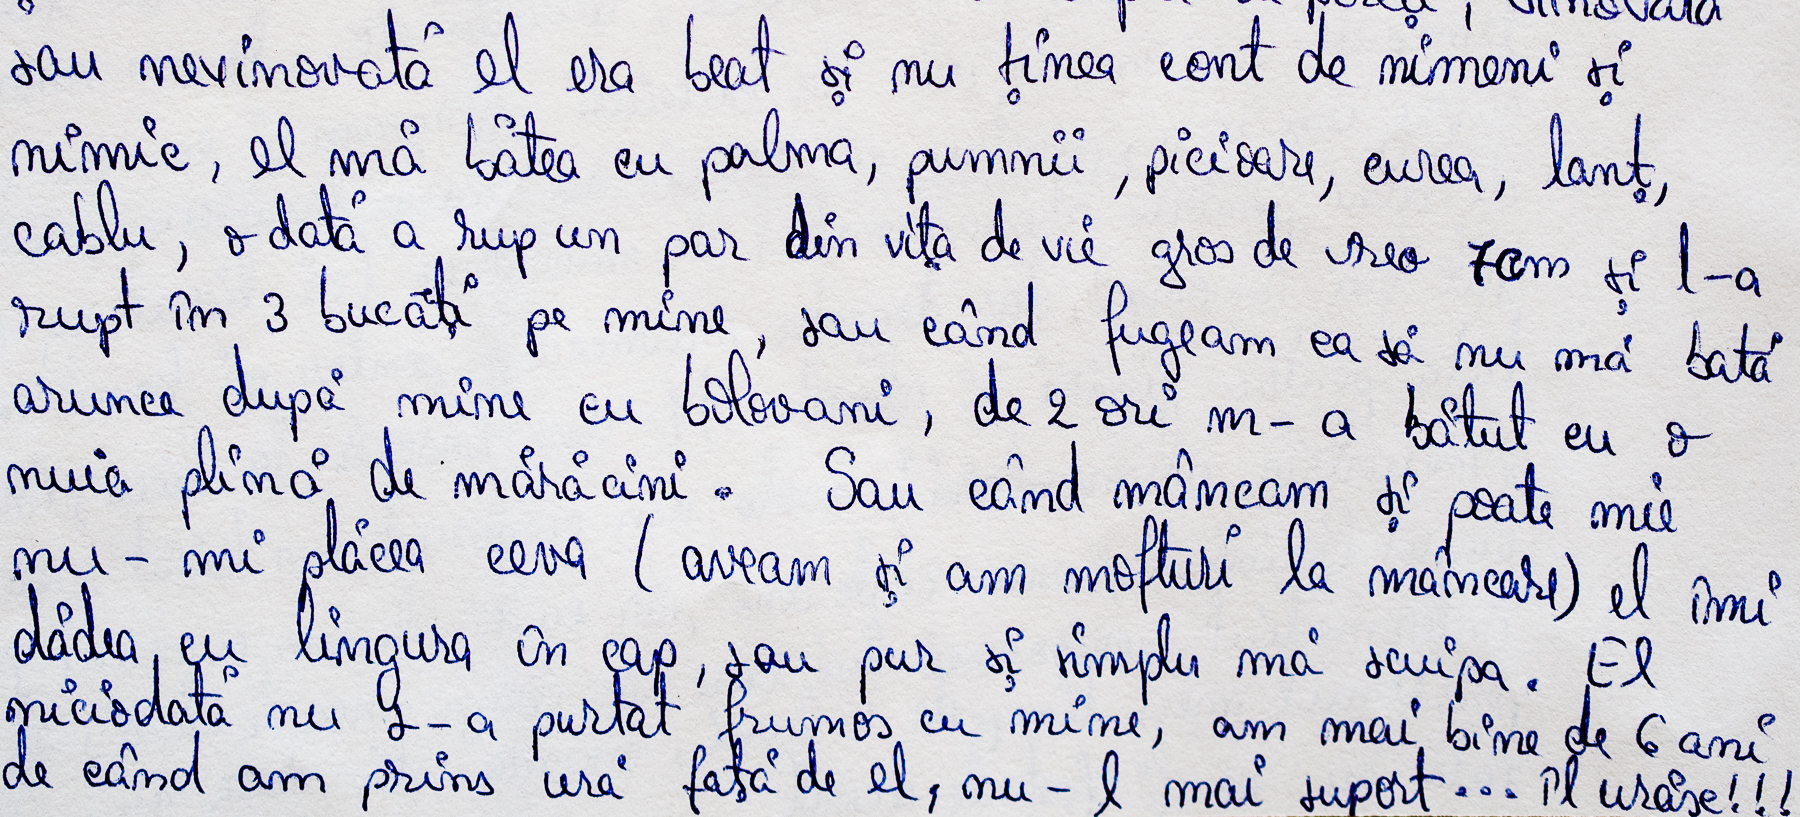 vinovată
sau nevinovată el era beat și nu ținea cont de nimeni și
nimic, el mă bătea cu palma, pumnii, picioare, curea, lanț,
cablu, odată a rup un par din vița de vie gros de vreo 7cm și l-a
rupt în 3 bucăți pe mine, sau când fugeam ca să nu mă bată
arunca după mine cu bolovani, de 2 ori m-a bătut cu o
nuia plină de mărăcini. Sau când mâncam și poate mie
nu-mi plăcea ceva (aveam și am mofturi la mâncare) el îmi
dădea cu lingura în cap, sau pur și simplu mă scuipa. El
niciodată nu s-a purtat frumos cu mine, am mai bine de 6 ani
de când am prins ură față de el, nu-l mai suport... Îl urăsc!!!